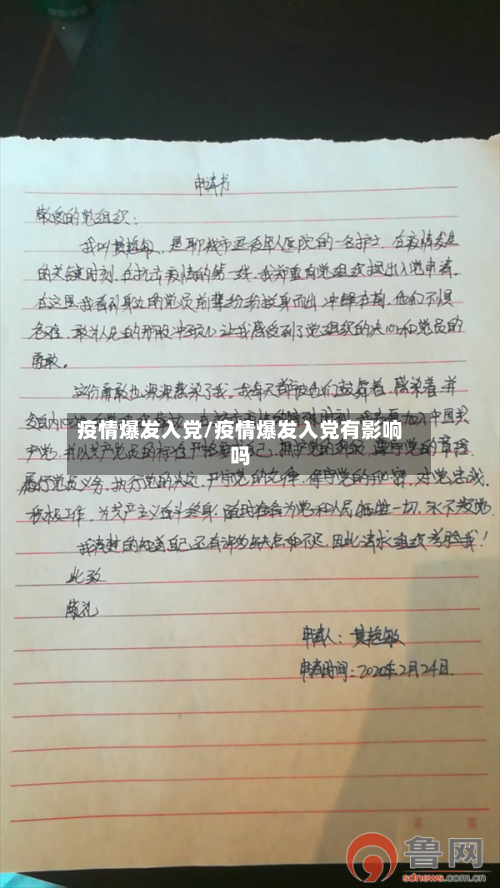 申请书
敬爱的党组织:
我叫黄超敏,是聊城市退役军人医院的一名护士,在疫情发生
的关键时刻,在抗击疫情的第一线,我郑重向党组织提出入党申请。
在这里我看到身边的党员前辈纷纷挺身而出,冲锋在前,他们不惧
危险,敢为人先的那股冲劲,让我感受到了党组织的决心和党员的
勇敢。
这份勇敢也深深感染了我。我每天都被他们鼓舞着,感染着,并
疫情爆发入党/疫情爆发入党有影响
吗
加入中国共
产党,
遵守党的章程
履行党员义务,执行党的决定,严守党的纪律,保守党的秘密,对党忠诚
积极工作,为共产主义奋斗终身,随时准备为党和人民牺牲一切,永不叛党
我清楚的知道自己还有许多缺点和不足,因此请求组织考验我!
此致
敬礼
申请人:黄超敏
申请时间:2020年2月24日
第 页
鲁网
sdnews.com.cn